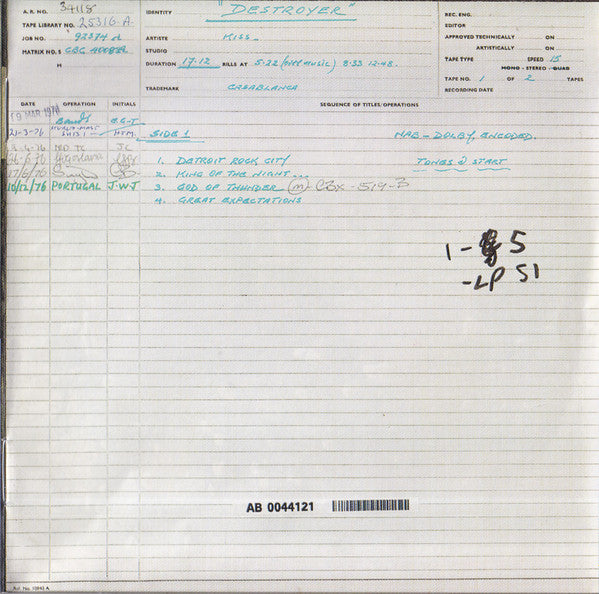 A.R. NO. 34118
TAPE LIBRARY NO. 25316-A
JOB NO. 92374
MATRIX NO.S CBC
M
IDENTITY "DESTROYER"
ARTISTE KISS.
STUDIO
DURATION 17.12 BILLS AT 5.22 (MUSIC) 8.33 12.48.
TRADEMARK CASABLANCA
REC. ENG.
EDITOR
APPROVED TECHNICALLY ON
ARTISTICALLY ON
TAPE TYPE SPEED 15
MONO - STEREO - QUAD
TAPE NO. 1 OF 2 TAPES
RECORDING DATE
DATE OPERATION INITIALS SEQUENCE OF TITLES/OPERATIONS
19 MAR 1976 E.G-T
21-3-76 HTM.
SIDE 1 NAB - DOLBY ENCODED.
-4-76 TC JC
1. DETROIT ROCK CITY TONES @ START
2. KING OF THE NIGHT...
17/6/76
3. GOD OF THUNDER (M) CBX-519-3
10/12/76 PORTUGAL J.W.J
4. GREAT EXPECTATIONS
1- 5
-LP 51
AB 0044121